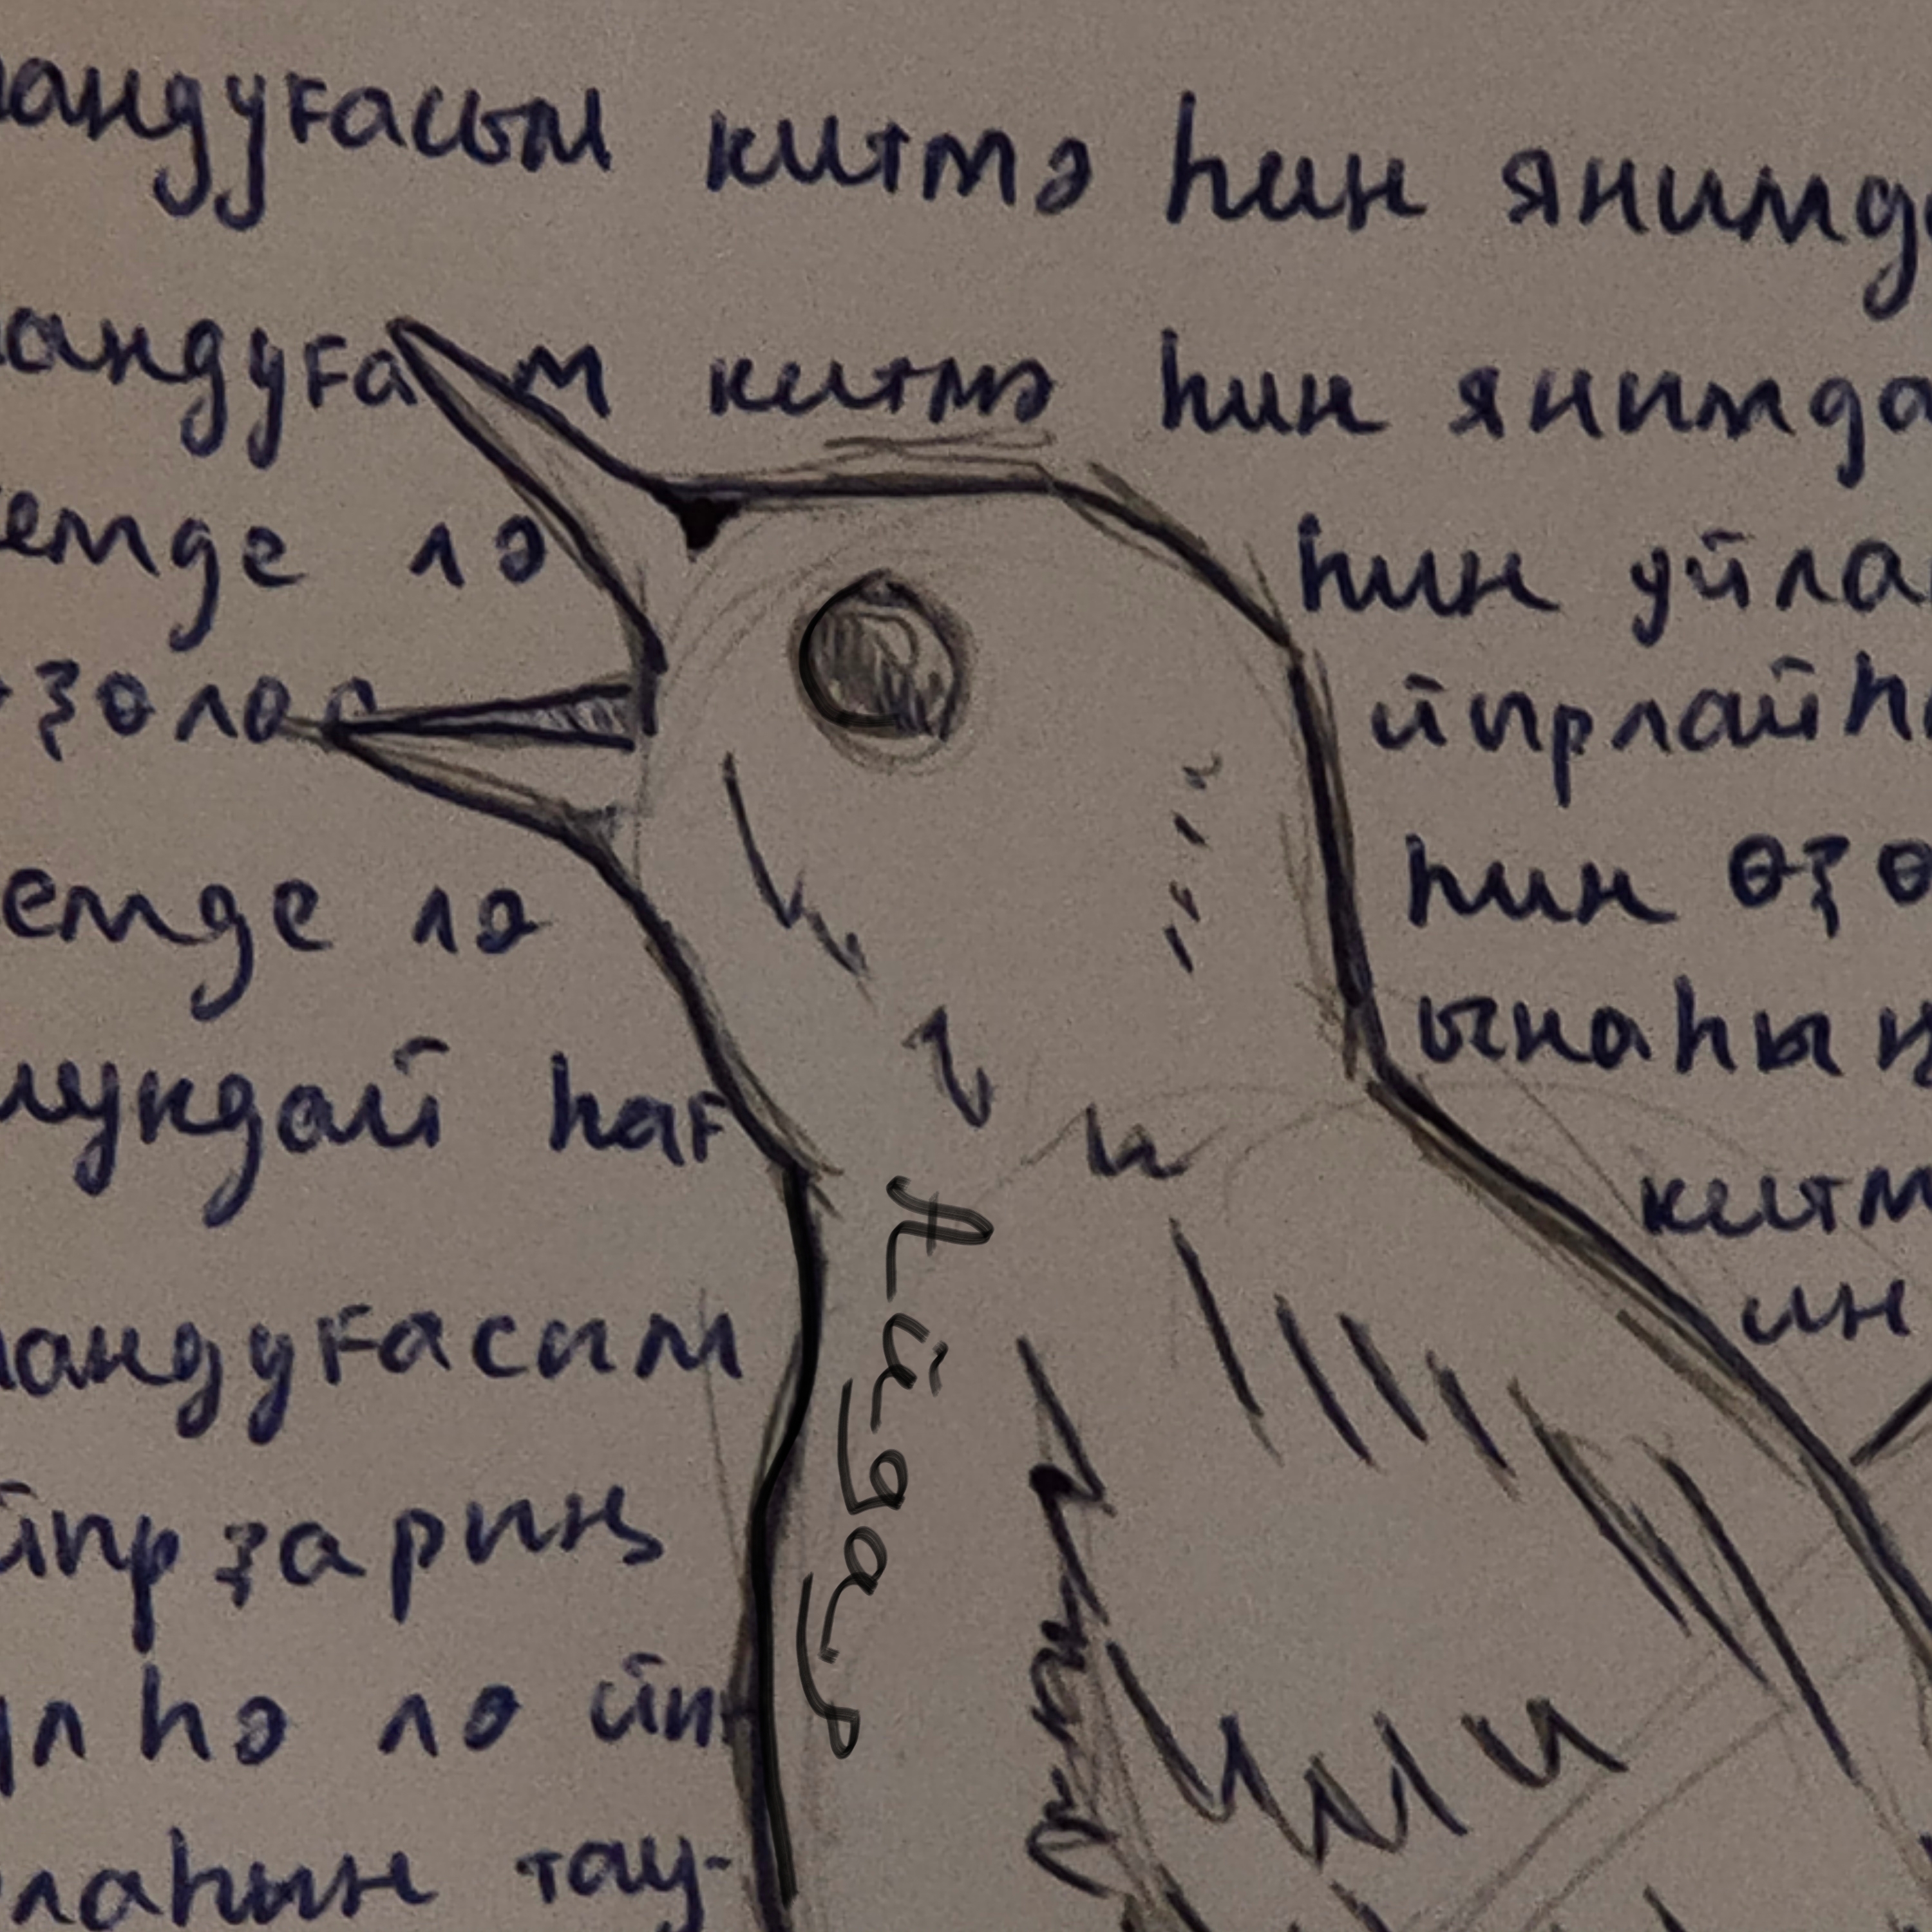 андуғасым китмә һин янимд
андуғам китмә һин янимда
емде лә һин уйла
ҙөлөп йырлайһ
емде лә һин өҙө
мукдай һағ ынаһың
китм
андуғасым ин
йырҙарың
лһә лә йы
лаһың тау-
Айдар